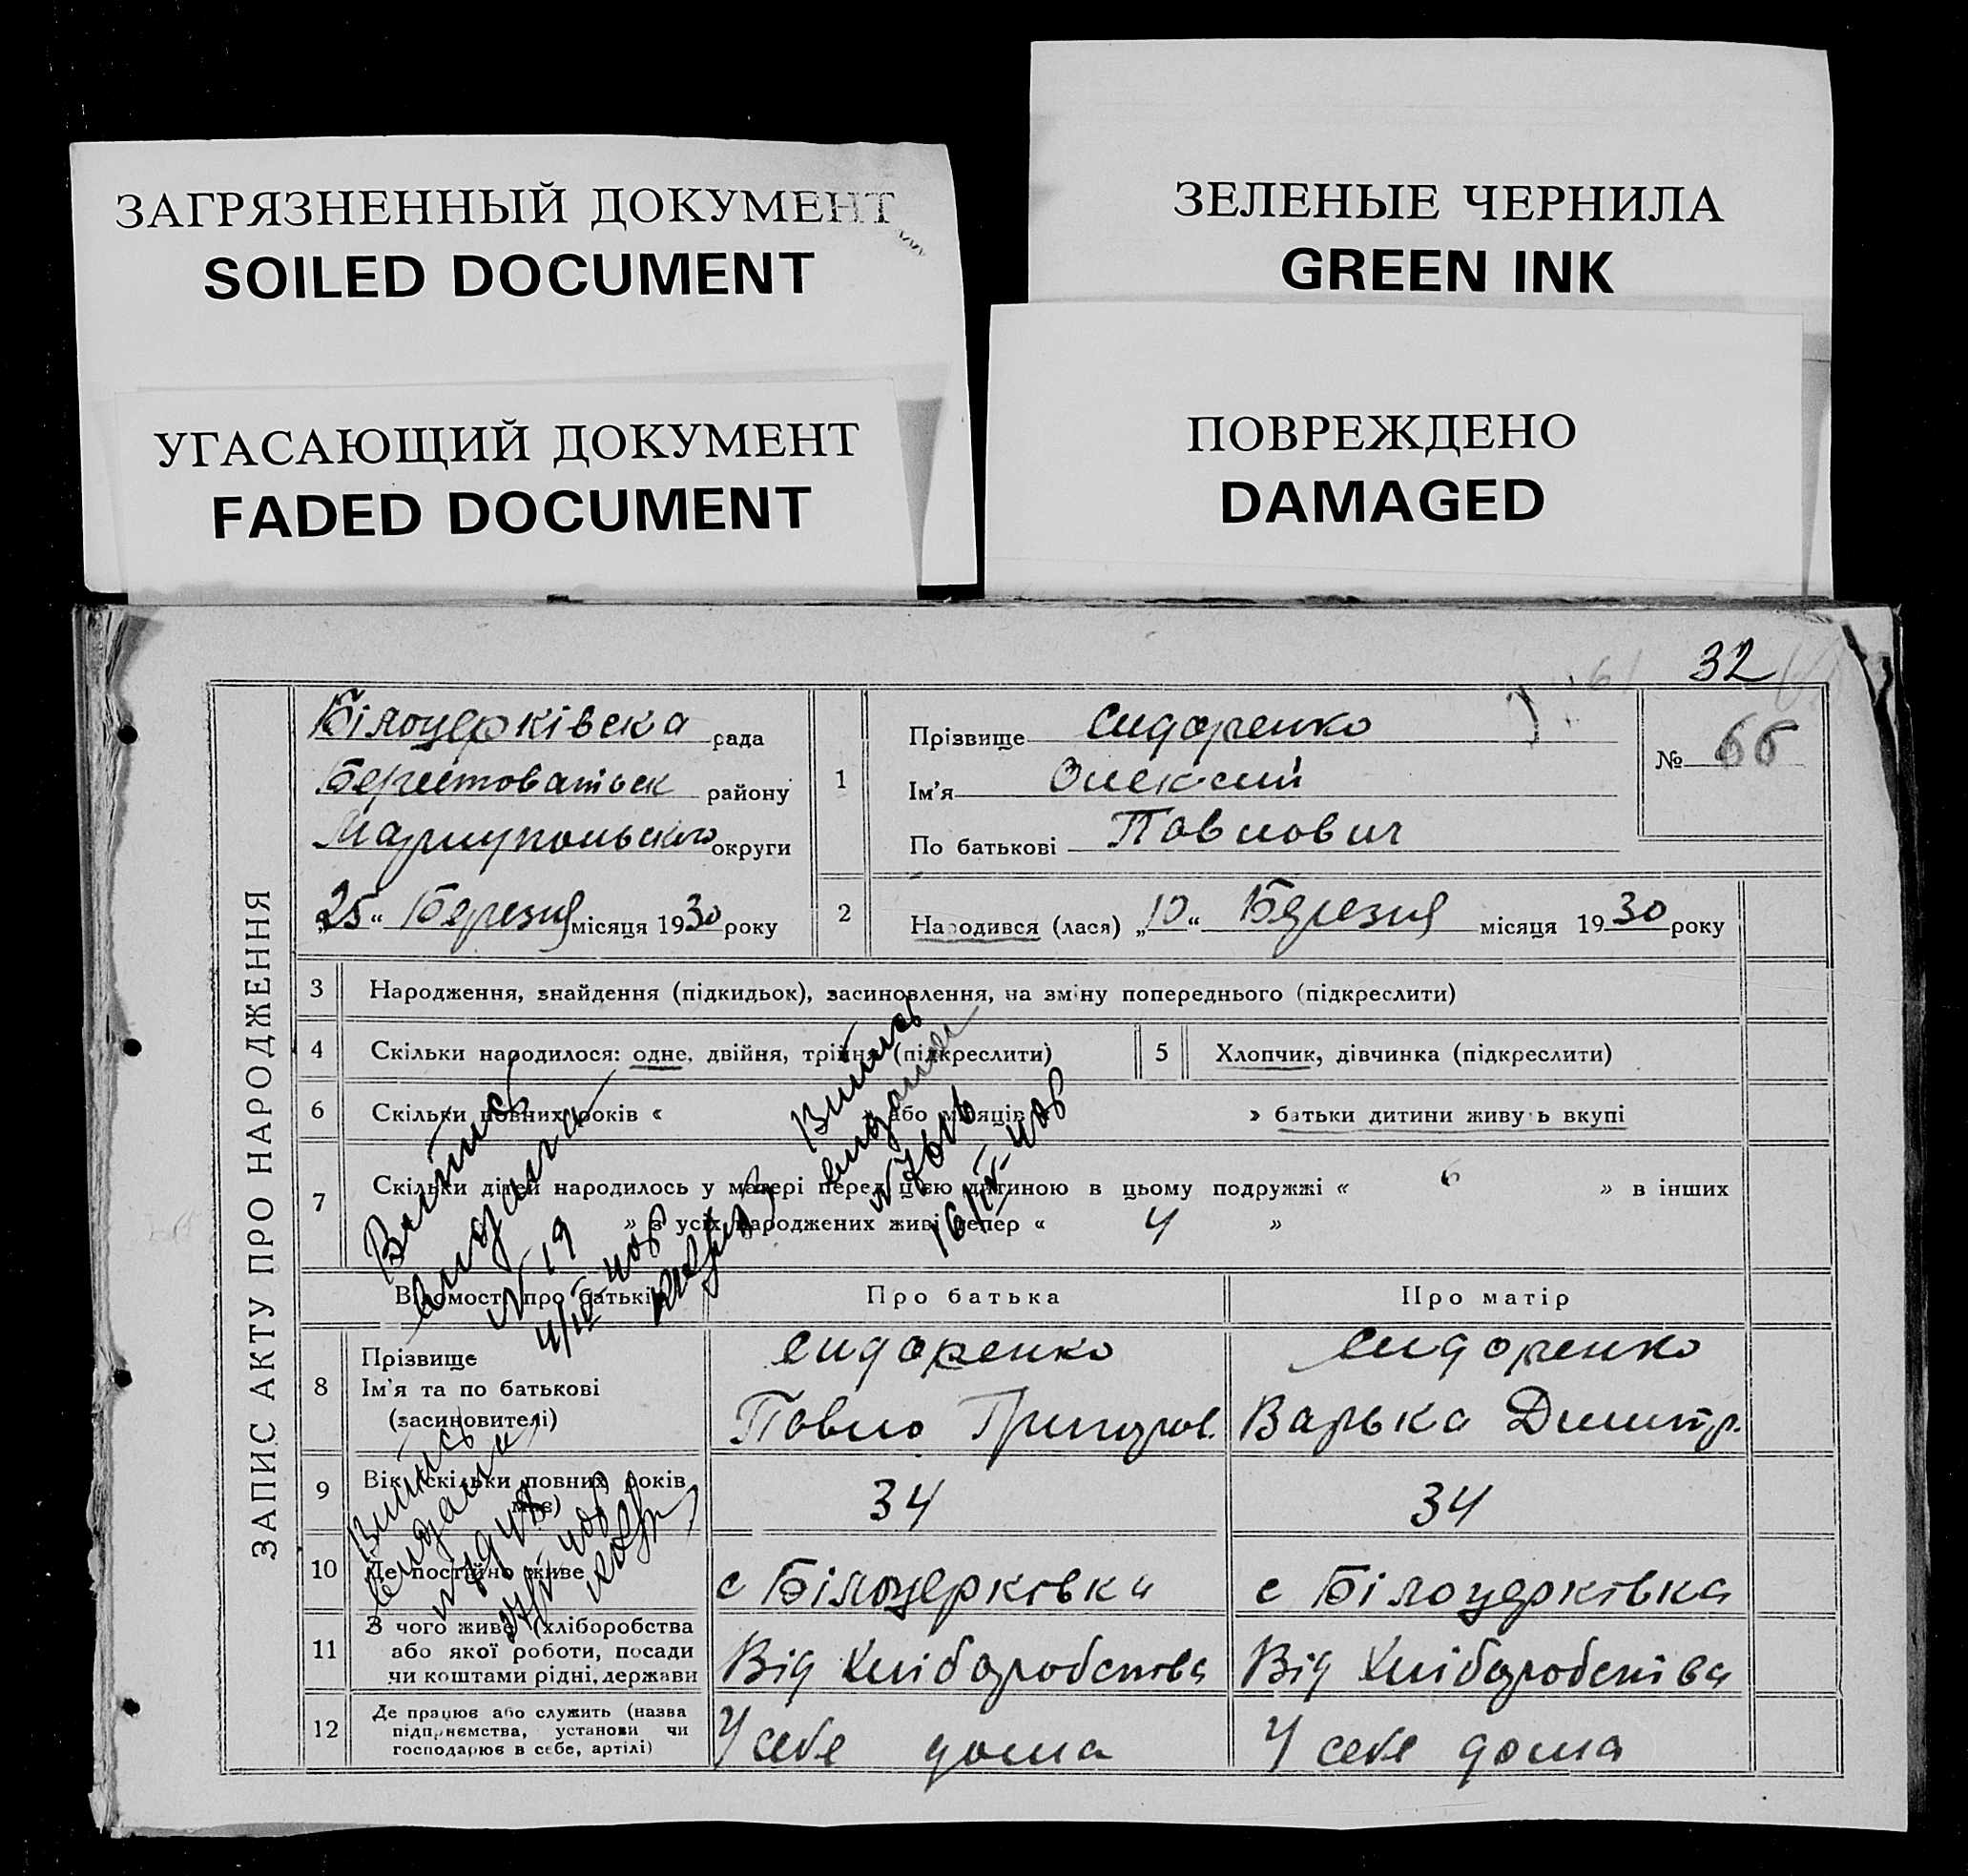 ЗАГРЯЗНЕННЫЙ ДОКУМЕНТ
SOILED DOCUMENT
УГАСАЮЩИЙ ДОКУМЕНТ
FADED DOCUMENT
ЗЕЛЕНЫЕ ЧЕРНИЛА
GREEN INK
ПОВРЕЖДЕНО
DAMAGED
32
ЗАПИС АКТУ ПРО НАРОДЖЕННЯ
Білоцерківска рада
Берестоватьск району
Маріупольского округи
„25“ Березня місяця 1930 року
1
Прізвище Сидоренко
Ім'я Олексий
По батькові Павлович
№ 66
2
Народився (лася) „10“ Березня місяця 1930 року
3 Народження, знайдення (підкидьок), засиновлення, на зміну попереднього (підкреслити)
4 Скільки народилося: одне, двійня, трійня (підкреслити)
5 Хлопчик, дівчинка (підкреслити)
6 Скільки повних років « » або місяців » батьки дитини живуть вкупі
7 Скільки дітей народилось у матері перед цією дитиною в цьому подружжі « 6 » в інших
» з усіх народжених живі тепер « 4 »
Витись
видана
N 19
Витись
видана
Відомості про батьків
Про батька
Про матір
8 Прізвище
Ім'я та по батькові
(засиновителі)
Сидоренко
Павло Григоров.
Сидоренко
Варька Димитр.
9 Вік (скільки повних років має)
34
34
10 Де постійно живе
с Білоцерковка
с Білоцерковка
11 З чого живе (хліборобства
або якої роботи, посади
чи коштами рідні, держави
Від Хліборобства
Від Хліборобства
12 Де працює або служить (назва
підприємства, установи чи
господарює в себе, артілі)
У себе дома
У себе дома
Витись
видана